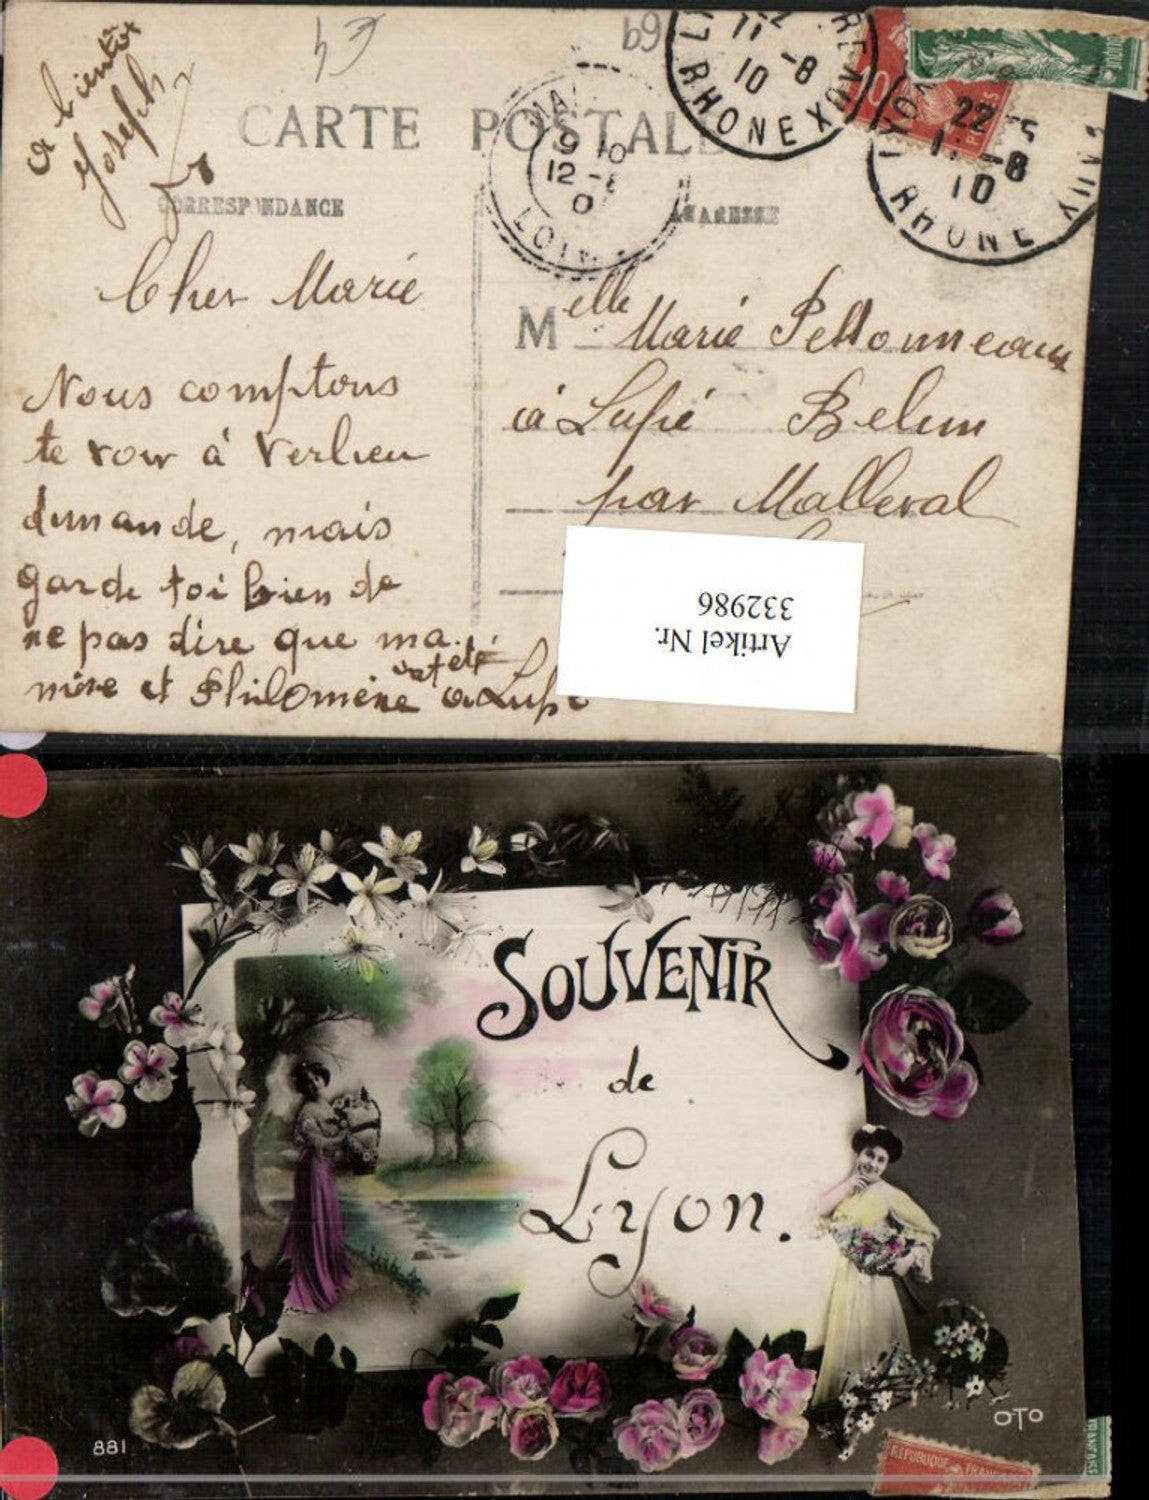 43
69
a bientôt
Joseph
CARTE POSTALE
CORRESPONDANCE
ADRESSE
11-8
10
RHONE
22
11-8
10
RHONE
9 10
12-8
LOIR
Cher Marie
Nous comptons
te voir à Verlieu
dimanche, mais
garde toi bien de
ne pas dire que ma
mère et Philomène ont été à Lupé
Melle Marie Pettonneaux
à Lupé Belun
par Malleval
Artikel Nr.
332986
SOUVENIR
de
Lyon.
881
OTO
REPUBLIQUE FRANCAISE